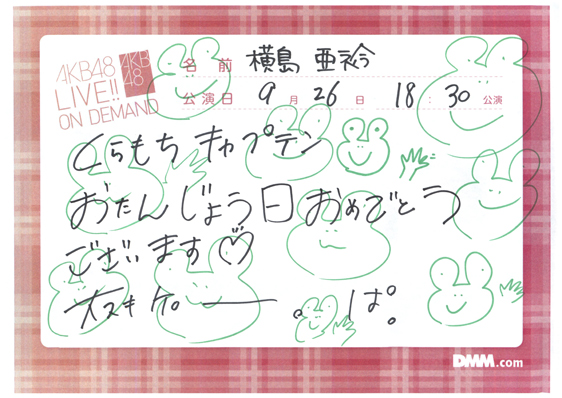 AKB48
LIVE!!
ON DEMAND
AKB
48
名前 横島 亜衿
公演日 9月26日 18:30公演
くらもち キャプテン
おたんじょう日 おめでとう
ございます♡
大スキケ。――。ぱ。
DMM.com